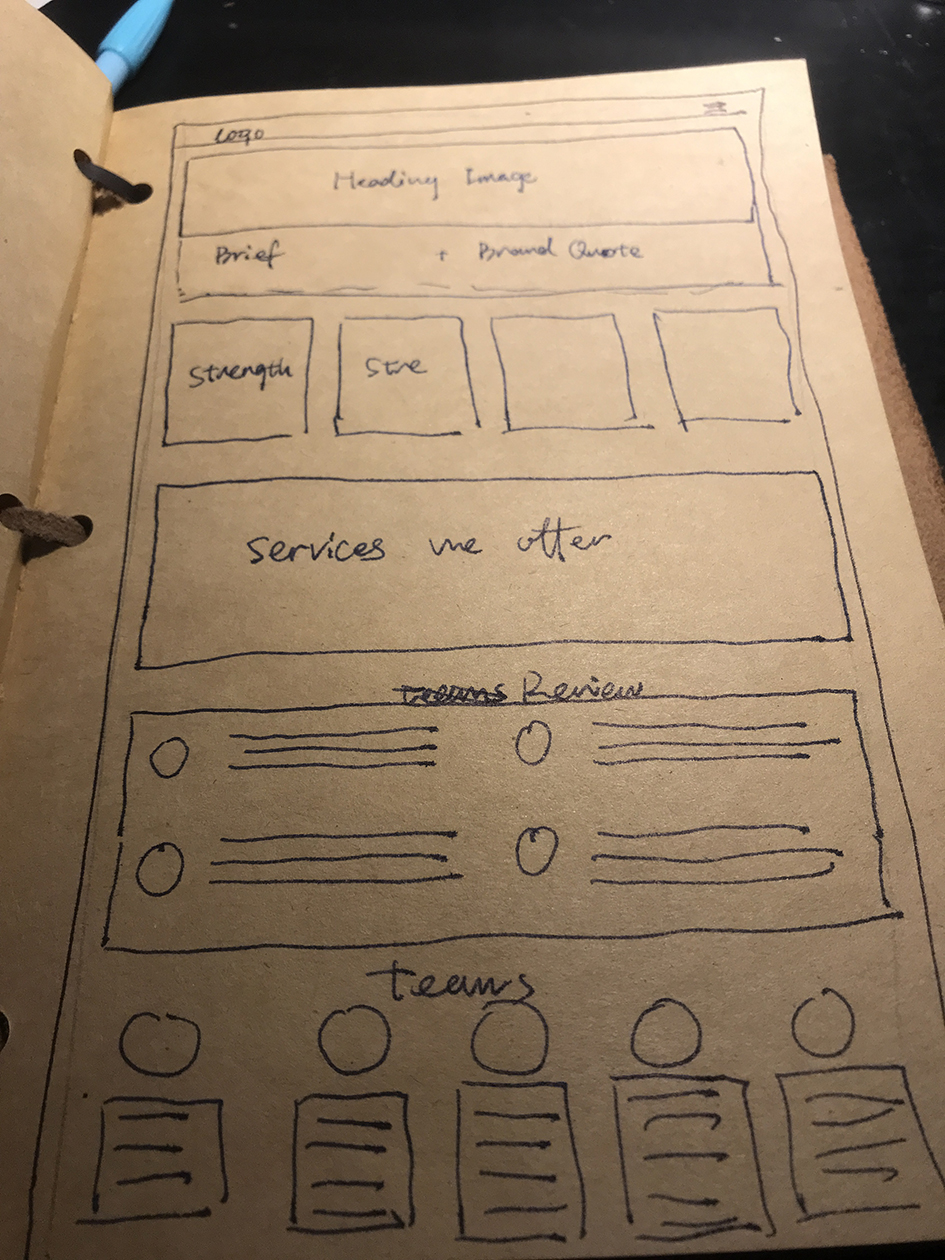 Logo
Heading Image
Brief + Brand Quote
Strength Stre
Services we offer
teams Review
teams